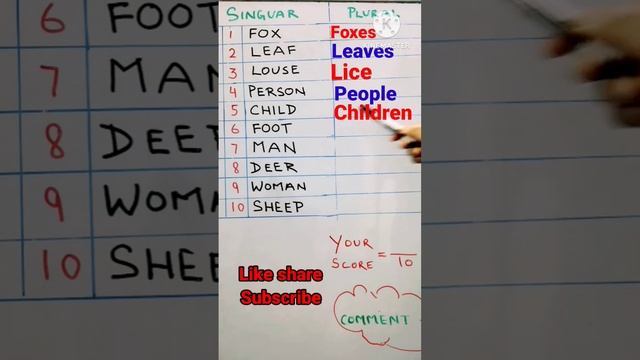 SINGUAR PLURAL
1 FOX Foxes
2 LEAF Leaves
3 LOUSE Lice
4 PERSON People
5 CHILD Children
6 FOOT
7 MAN
8 DEER
9 WOMAN
10 SHEEP
YOUR
SCORE = /10
Like share
Subscribe
COMMENT
6 FOOT
7 MAN
8 DEER
9 WOM
10 SHEE